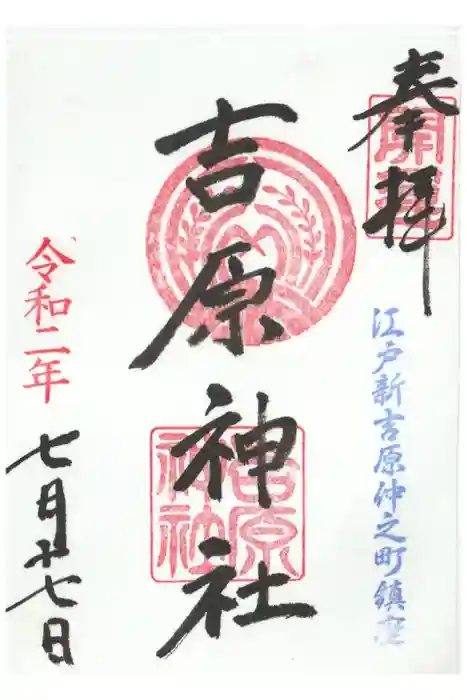 奉拝
江戸新吉原仲之町鎮座
吉原神社
吉原
神社
令和二年
七月廿七日